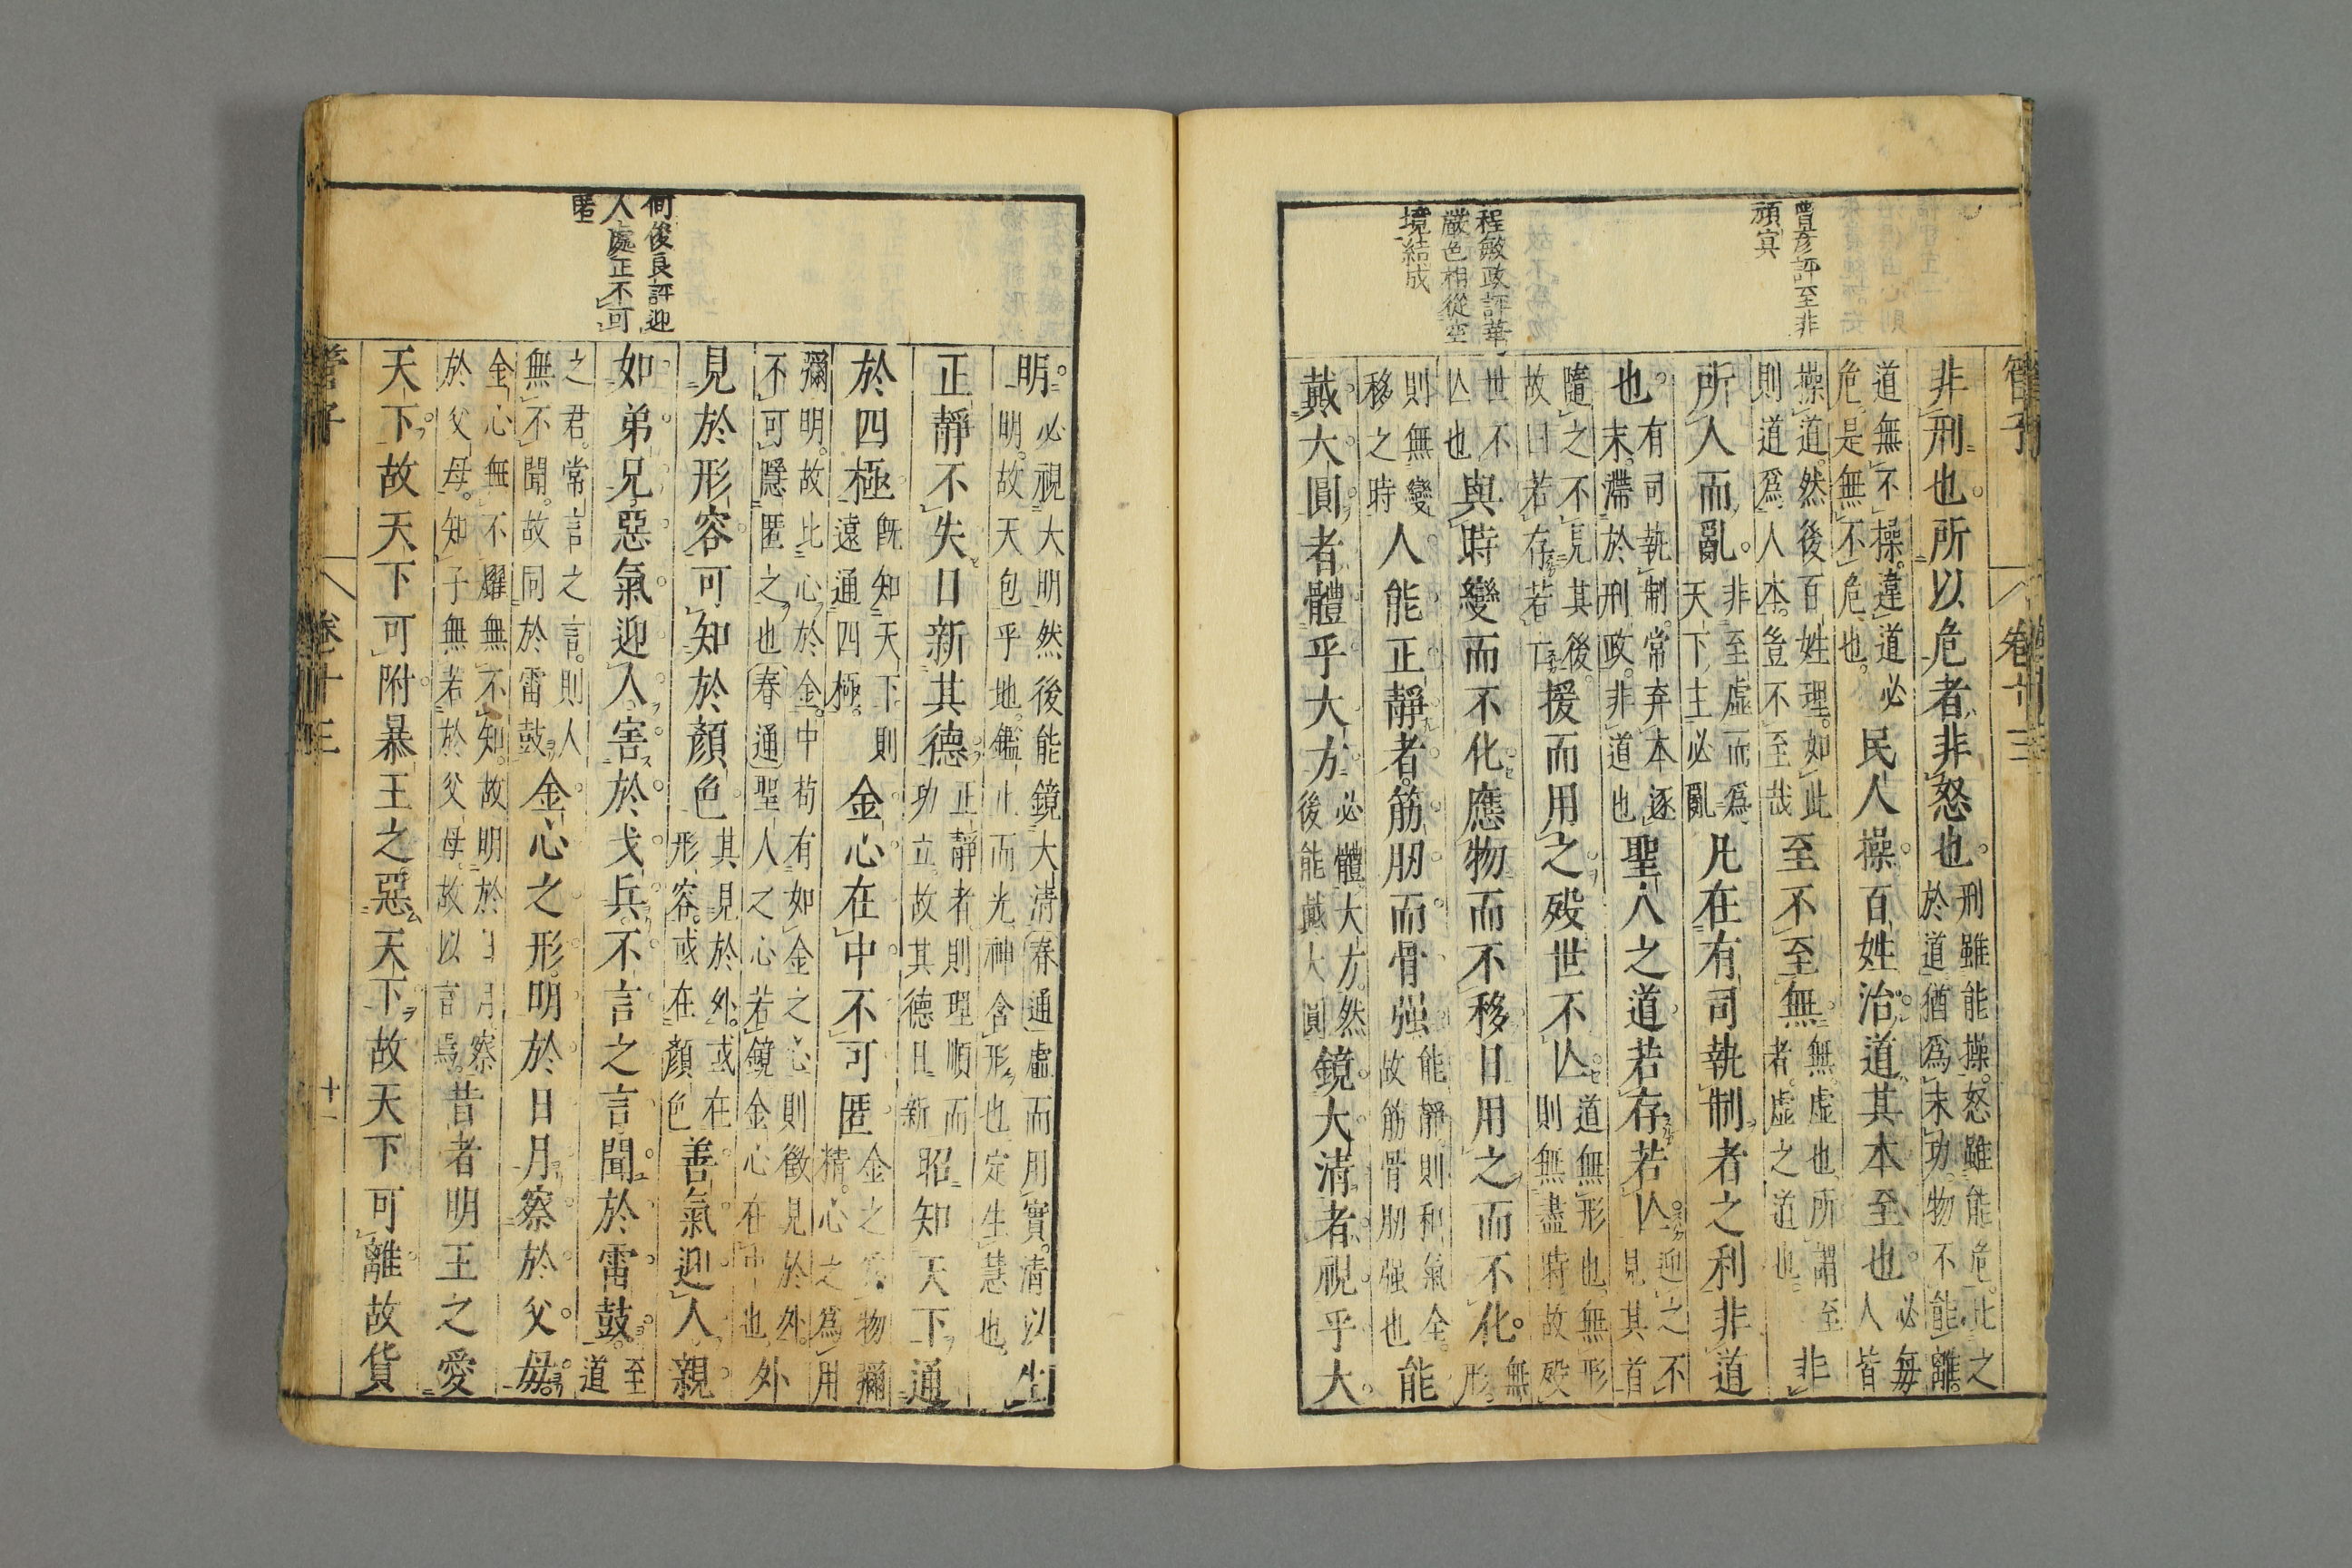 曹彥評至非
頑冥
程敏政評華
嚴色相從空
境結成
管子
卷十三
非刑也。所以危者非怒也。刑雖能操。怒雖能危。比之
於道猶爲末功。物不能離。
道無不操。違道必
危。是無不危也。民人操。百姓治。道其本至也。必每
人皆
操道。然後百姓理。如此
則道爲人本。豈不至哉至不至無。無。虛也。所謂至
者。虛之道也。非
所人而亂。非至虛而爲
天下主必亂凡在有司執制者之利非道
也。有司執制。常弃本逐
末。滯於刑政。非道也聖人之道。若存若亡。迎之不
見其首
隨之不見其後。
故曰若存若亡援而用之。歿世不亡。道無形也。無形
則無盡時。故歿
世不
亡也與時變而不化。應物而不移。日用之而不化。無
形。
則無變
移之時人能正靜者。筋肕而骨强。能靜則和氣全。
故筋骨肕强也能
戴大圓者。體乎大方。必體大方。然
後能戴大圓鏡大淸者。視乎大
何俊良評迎
人處正不可
匿
明。必視大明然後能鏡大淸春通虛而用實。淸以生
明。故天包乎地。鑑止而光神含形也定生慧也。
正靜不失。日新其德。正靜者則理順而
功立。故其德日新昭知天下。通
於四極。旣知天下則
遠通四極。金心在中不可匿。金之爲物彌
精。心之爲用
彌明。故比心於金。中苟有如金之心則徵見於外。
不可隱匿之也春通聖人之心若鏡金心在中也外
見於形容。可知於顏色。其見於外。或在
形容。或在顏色善氣迎人。親
如弟兄。惡氣迎人。害於戈兵。不言之言。聞於雷鼓。至
道
之君。常言之言。則人
無不聞。故同於雷鼓金心之形。明於日月。察於父母。
金心無不燿無不知。故明於日月察
於父母。知子無若於父母。故以言焉。昔者明王之愛
天下。故天下可附。暴王之惡天下。故天下可離。故貨
管子
卷十三
十一